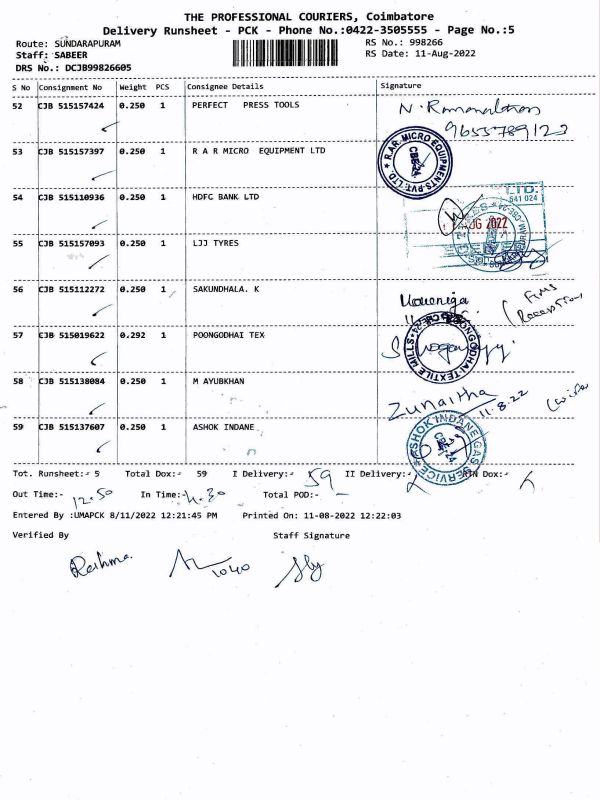 THE PROFESSIONAL COURIERS, Coimbatore
Delivery Runsheet - PCK - Phone No.:0422-3505555 - Page No.:5
Route: SUNDARAPURAM RS No.: 998266
Staff: SABEER RS Date: 11-Aug-2022
DRS No.: DCJB99826605
S No Consignment No Weight PCS Consignee Details Signature
52 CJB 515157424 0.250 1 PERFECT PRESS TOOLS
9655789123
53 CJB 515157397 0.250 1 R A R MICRO EQUIPMENT LTD
R.A.R. MICRO EQUIPMENTS PVT. LTD
CBE-24
54 CJB 515110936 0.250 1 HDFC BANK LTD
LTD.
641 024
AUG 2022
55 CJB 515157093 0.250 1 LJJ TYRES
56 CJB 515112272 0.250 1 SAKUNDHALA. K
Reception)
57 CJB 515019622 0.292 1 POONGODHAI TEX
POONGODHAI TEXTILE MILLS
58 CJB 515138084 0.250 1 M AYUBKHAN
Zunaitha
11.8.22
59 CJB 515137607 0.250 1 ASHOK INDANE
ASHOK INDANE GAS SERVICE
Tot. Runsheet:- 5 Total Dox:- 59 I Delivery:- 59 II Delivery:- Dox:-
Out Time:- 12.50 In Time:- 4.30 Total POD:- -
Entered By :UMAPCK 8/11/2022 12:21:45 PM Printed On: 11-08-2022 12:22:03
Verified By Staff Signature
Reshma
1040